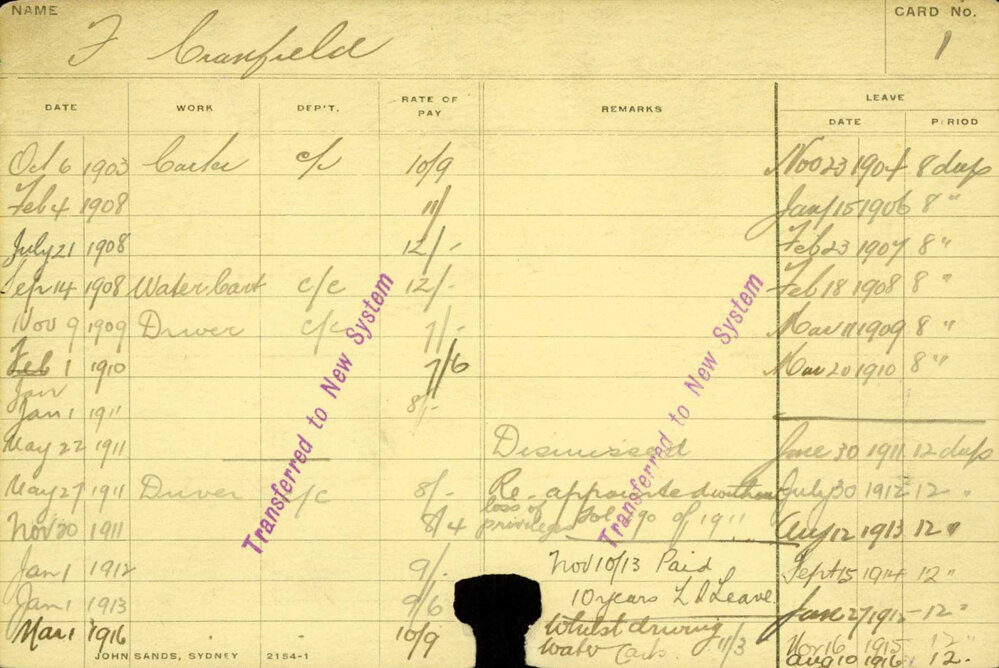 NAME
F Cranfield
CARD No.
1
DATE WORK DEP'T. RATE OF PAY REMARKS LEAVE
DATE PERIOD
Oct 6 1903 Carter c/c 10/9 Nov 23 1904 8 days
Feb 4 1908 11/ Jany 15 1906 8 "
July 21 1908 12/- Feb 23 1907 8 "
Sep 14 1908 Water Cart c/c 12/- Feb 18 1908 8 "
Nov 9 1909 Driver c/c 7/- Mar 11 1909 8 "
Feb 1 1910 7/6 Mar 20 1910 8 "
Jan
Jan 1 1911 8/-
May 22 1911 Dismissed June 30 1911 12 days
May 27 1911 Driver c/c 8/- Re-appointed without July 30 1912 12 "
loss of
Nov 20 1911 8/4 privileges Sol 490 of 1911 Aug 12 1913 12 "
Jan 1 1912 9/- Nov 10/13 Paid Sept 15 1914 12 "
Jan 1 1913 9/6 10 years L S Leave 27 1915 12 "
Mar 1 1916 10/9 Whilst driving Nov 16 1915 12 "
Water Cart. 11/3 Aug 10 1916 12 "
Transferred to New System
Transferred to New System
JOHN SANDS, SYDNEY 2154-1